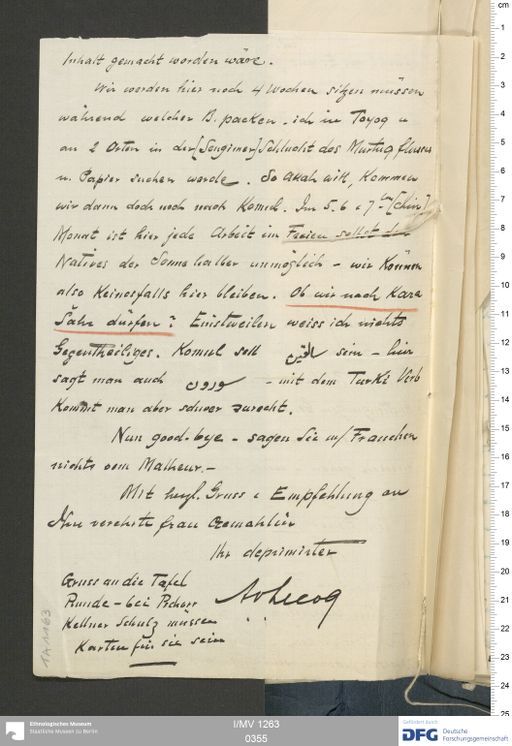 Inhalt gemacht worden wäre.
Wir werden hier noch 4 Wochen sitzen müssen
während welcher B. packen, ich in Toyoq u
an 2 Orten in der [Sengimer] Schlucht des Murtuq flusses
n. Papier suchen werde. So Allah will, kommen
wir dann doch noch nach Komul. Im 5. 6 & 7ten [Chin]
Monat ist hier jede Arbeit im Freien selbst den
Natives der Sonne halber unmöglich – wir können
also keinesfalls hier bleiben. Ob wir nach Kara
Šahr dürfen? Einstweilen weiss ich nichts
Gegentheiliges. Komul soll sein – hier
sagt man auch – mit dem Turki Verb
kommt man aber schwer zurecht.
Nun good-bye – sagen Sie m/ Frauchen
nichts vom Malheur. –
Mit herzl. Gruss & Empfehlung an
Ihre verehrte Frau Gemahlin
Ihr deprimirter
Gruss an die Tafel
Runde – bei Pschorr
AvLecoq
Kellner Schulz müssen
Karten für sie sein
TA 1163
cm
1
2
3
4
5
6
7
8
9
10
11
12
13
14
15
16
17
18
19
20
21
22
23
24
25
Ethnologisches Museum
Staatliche Museen zu Berlin
I/MV 1263
0355
Gefördert durch
DFG Deutsche
Forschungsgemeinschaft